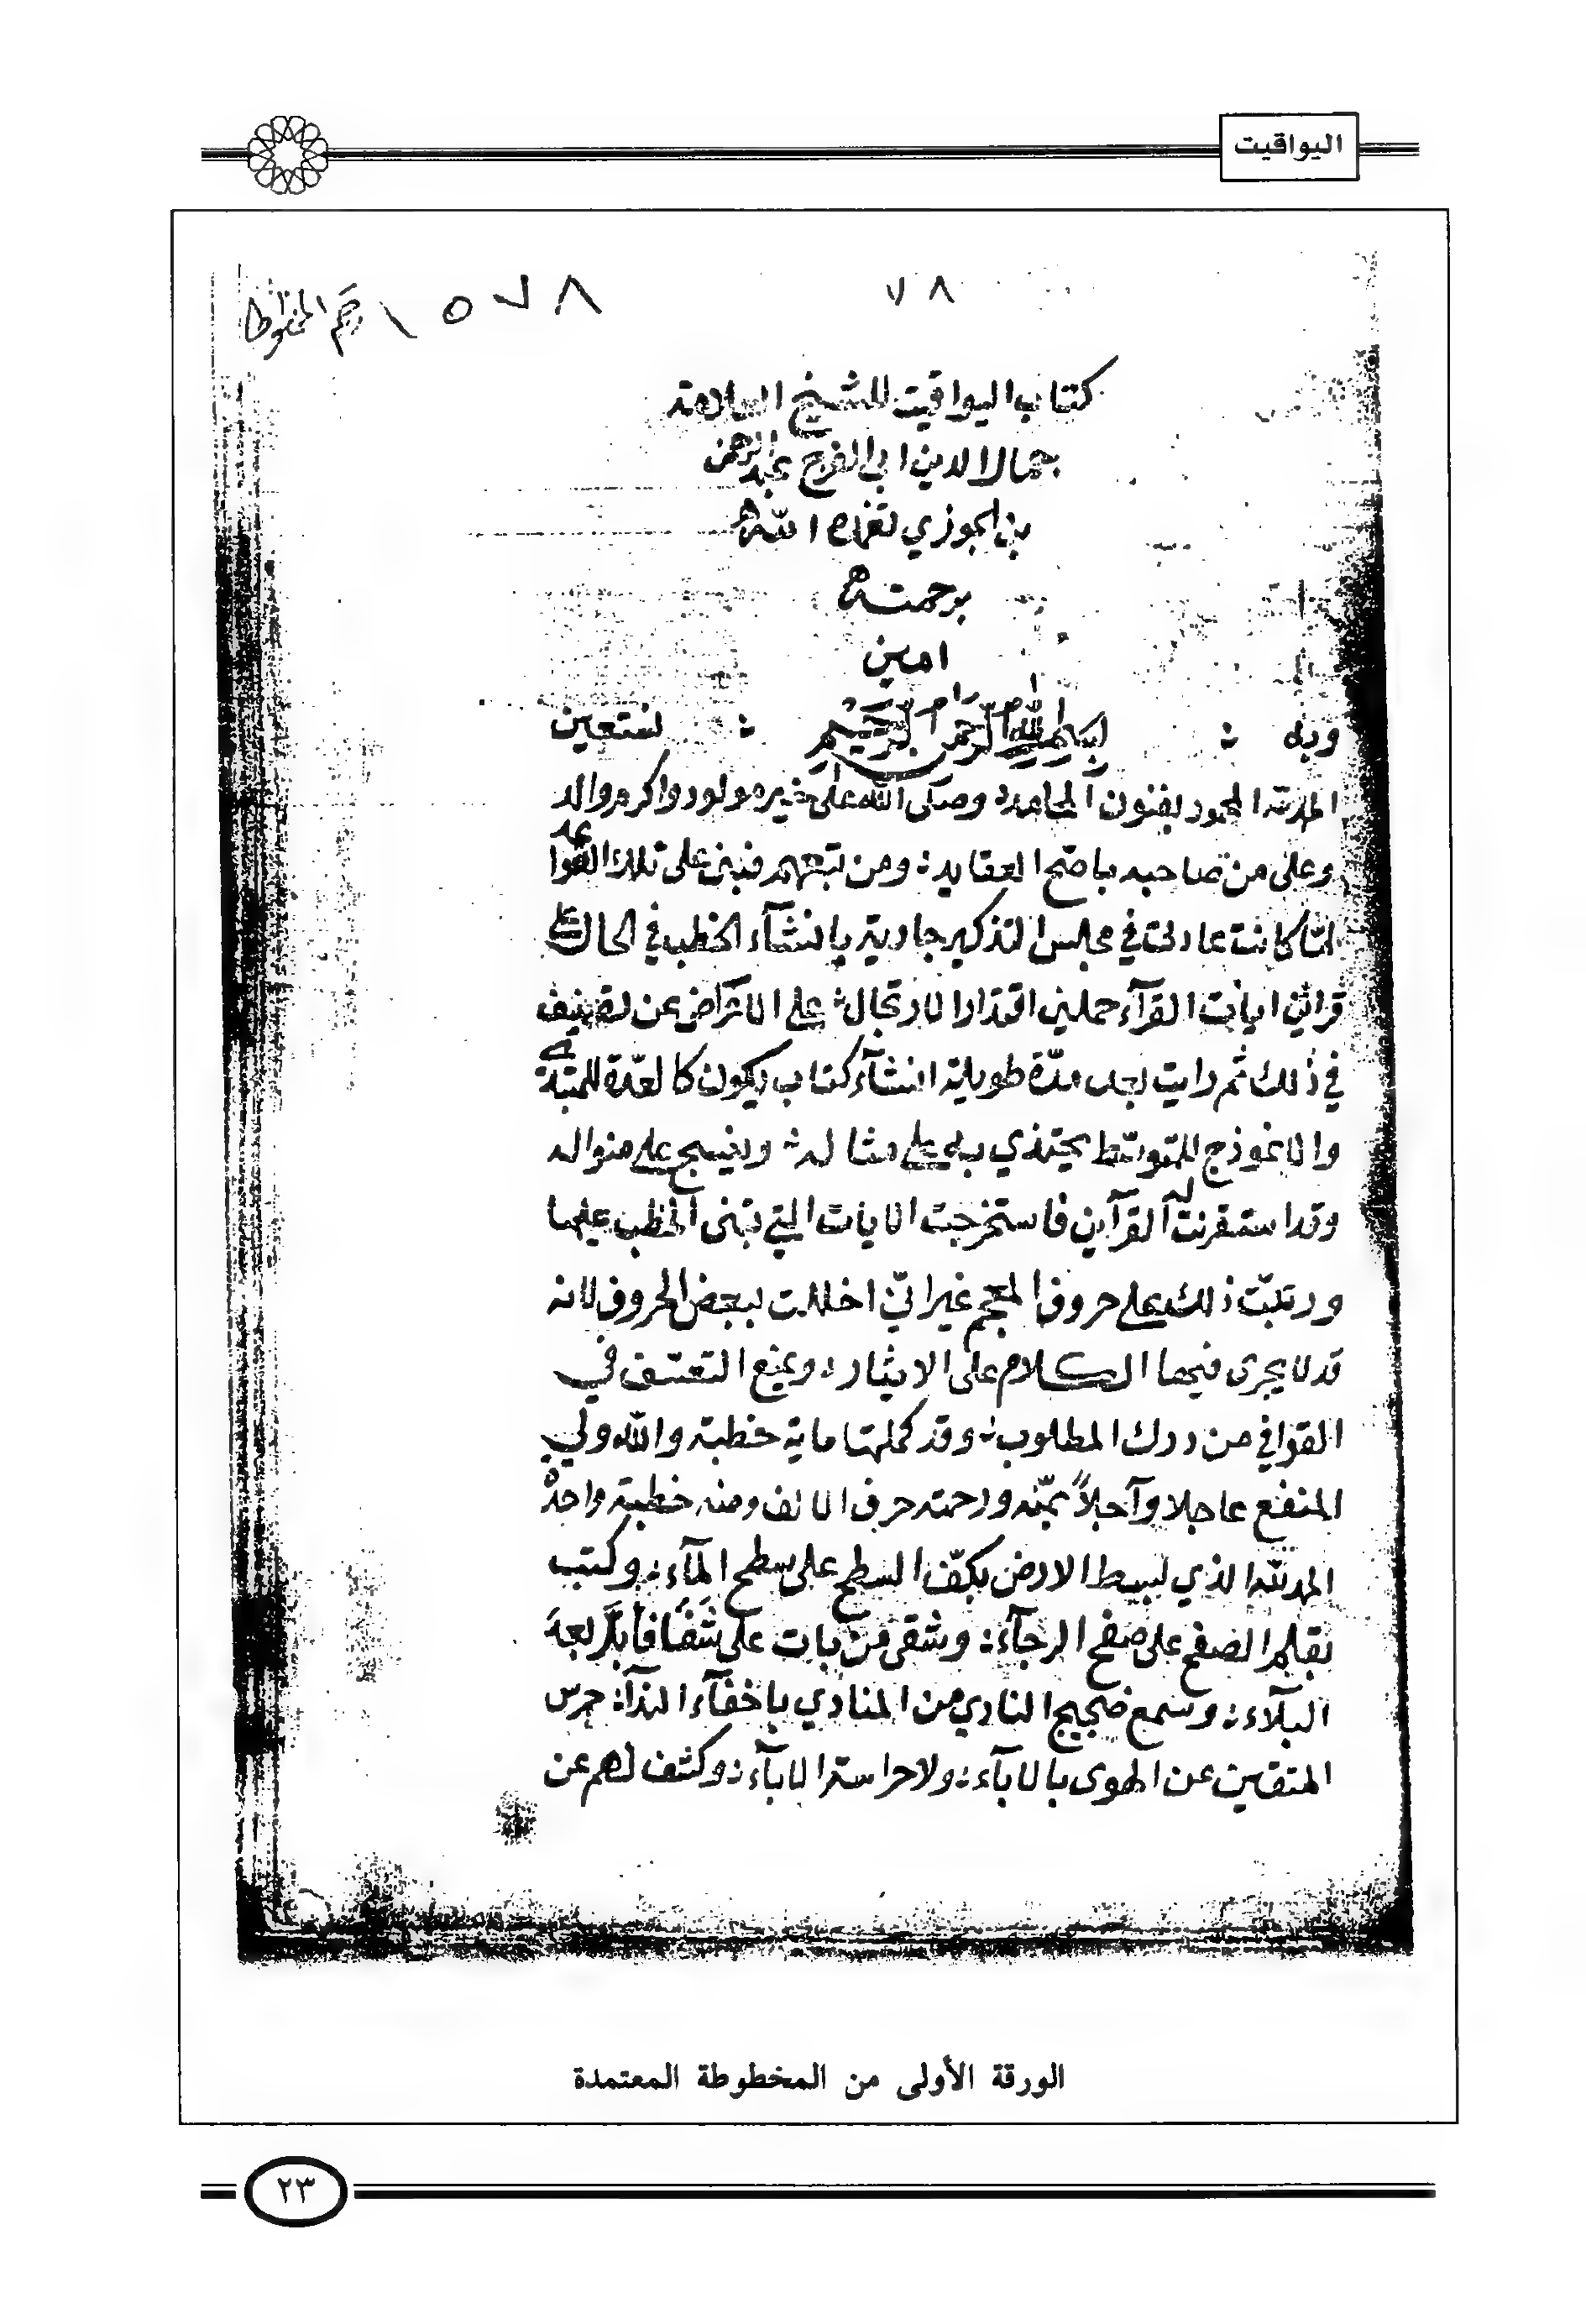 اليواقيت
٧٨
رقم المخطوط ١٥٧٨
كتاب اليواقيت للشيخ العلامة
جمال الدين ابي الفرج عبد الرحمن
بن الجوزي تغمده الله
برحمته
امين
وبه بسم الله الرحمن الرحيم نستعين
الحمد لله المحمود بفنون المحامد وصلى الله على خير مولود واكرم والد
وعلى من صاحبه باصح العقايد ومن تبعهم فبنى على تلك القواعد
لما كانت عادتي في مجلس التذكير جارية بانشآء الخطب في الحال على
قرائن ايات القرآء حملني اقتدار الارتجال على الاعراض عن تصنيف
في ذلك ثم رايت بعد مدّة طويلة انشآء كتاب يكون كالعدّة للمبتدي
والانموذج للمتوسّط يحتذي به على مثاله وينسج على منواله
وقد استقريت له القرآن فاستخرجت الايات التي تبنى الخطب عليها
ورتبّت ذلك على حروف المعجم غير انّي اخللت ببعض الحروف لانه
قد لا يجرى فيها الكلام على الايثار ويمنع التعسّف في
القوافي من درك المطلوب وقد كملتها ماية خطبة والله ولي
المنفع عاجلا وآجلاً بمنّه ورحمته حرف الالف ومنه خطبة واحدة
الحمد لله الذي بسط الارض بكفّ السطح على سطح المآء وكتب
بقلم الصفح على صفح الرجآء وشفى من بات على شَفَا فأبلّ بعد
البلآء وسمع ضجيج النادي من المنادي باخفآء الندآ حرس
المتقين عن الهوى بالابآء ولا حراسة الابآء وكشف لهم عن
الورقة الأولى من المخطوطة المعتمدة
٢٣